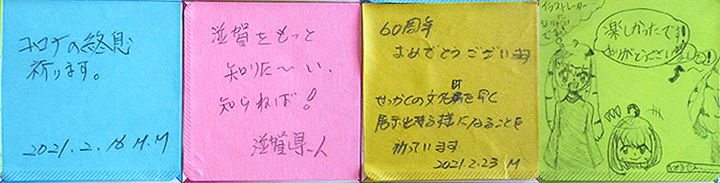 コロナの終息
祈ります。
2021.2.16 M.M
滋賀をもっと
知りた〜い、
知らねば!
滋賀県一人
60周年
おめでとうございます
せっかくの文化財を早く
展示出来る様になることを
祈っています
2021.2.23 M
イラストレーター
なりたい
です
楽しかったです!
ありがとうござい